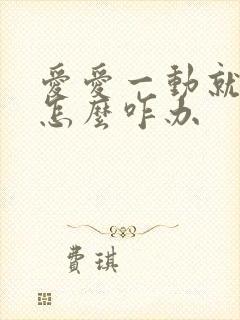 愛愛一動就
怎麼咋办
費琪